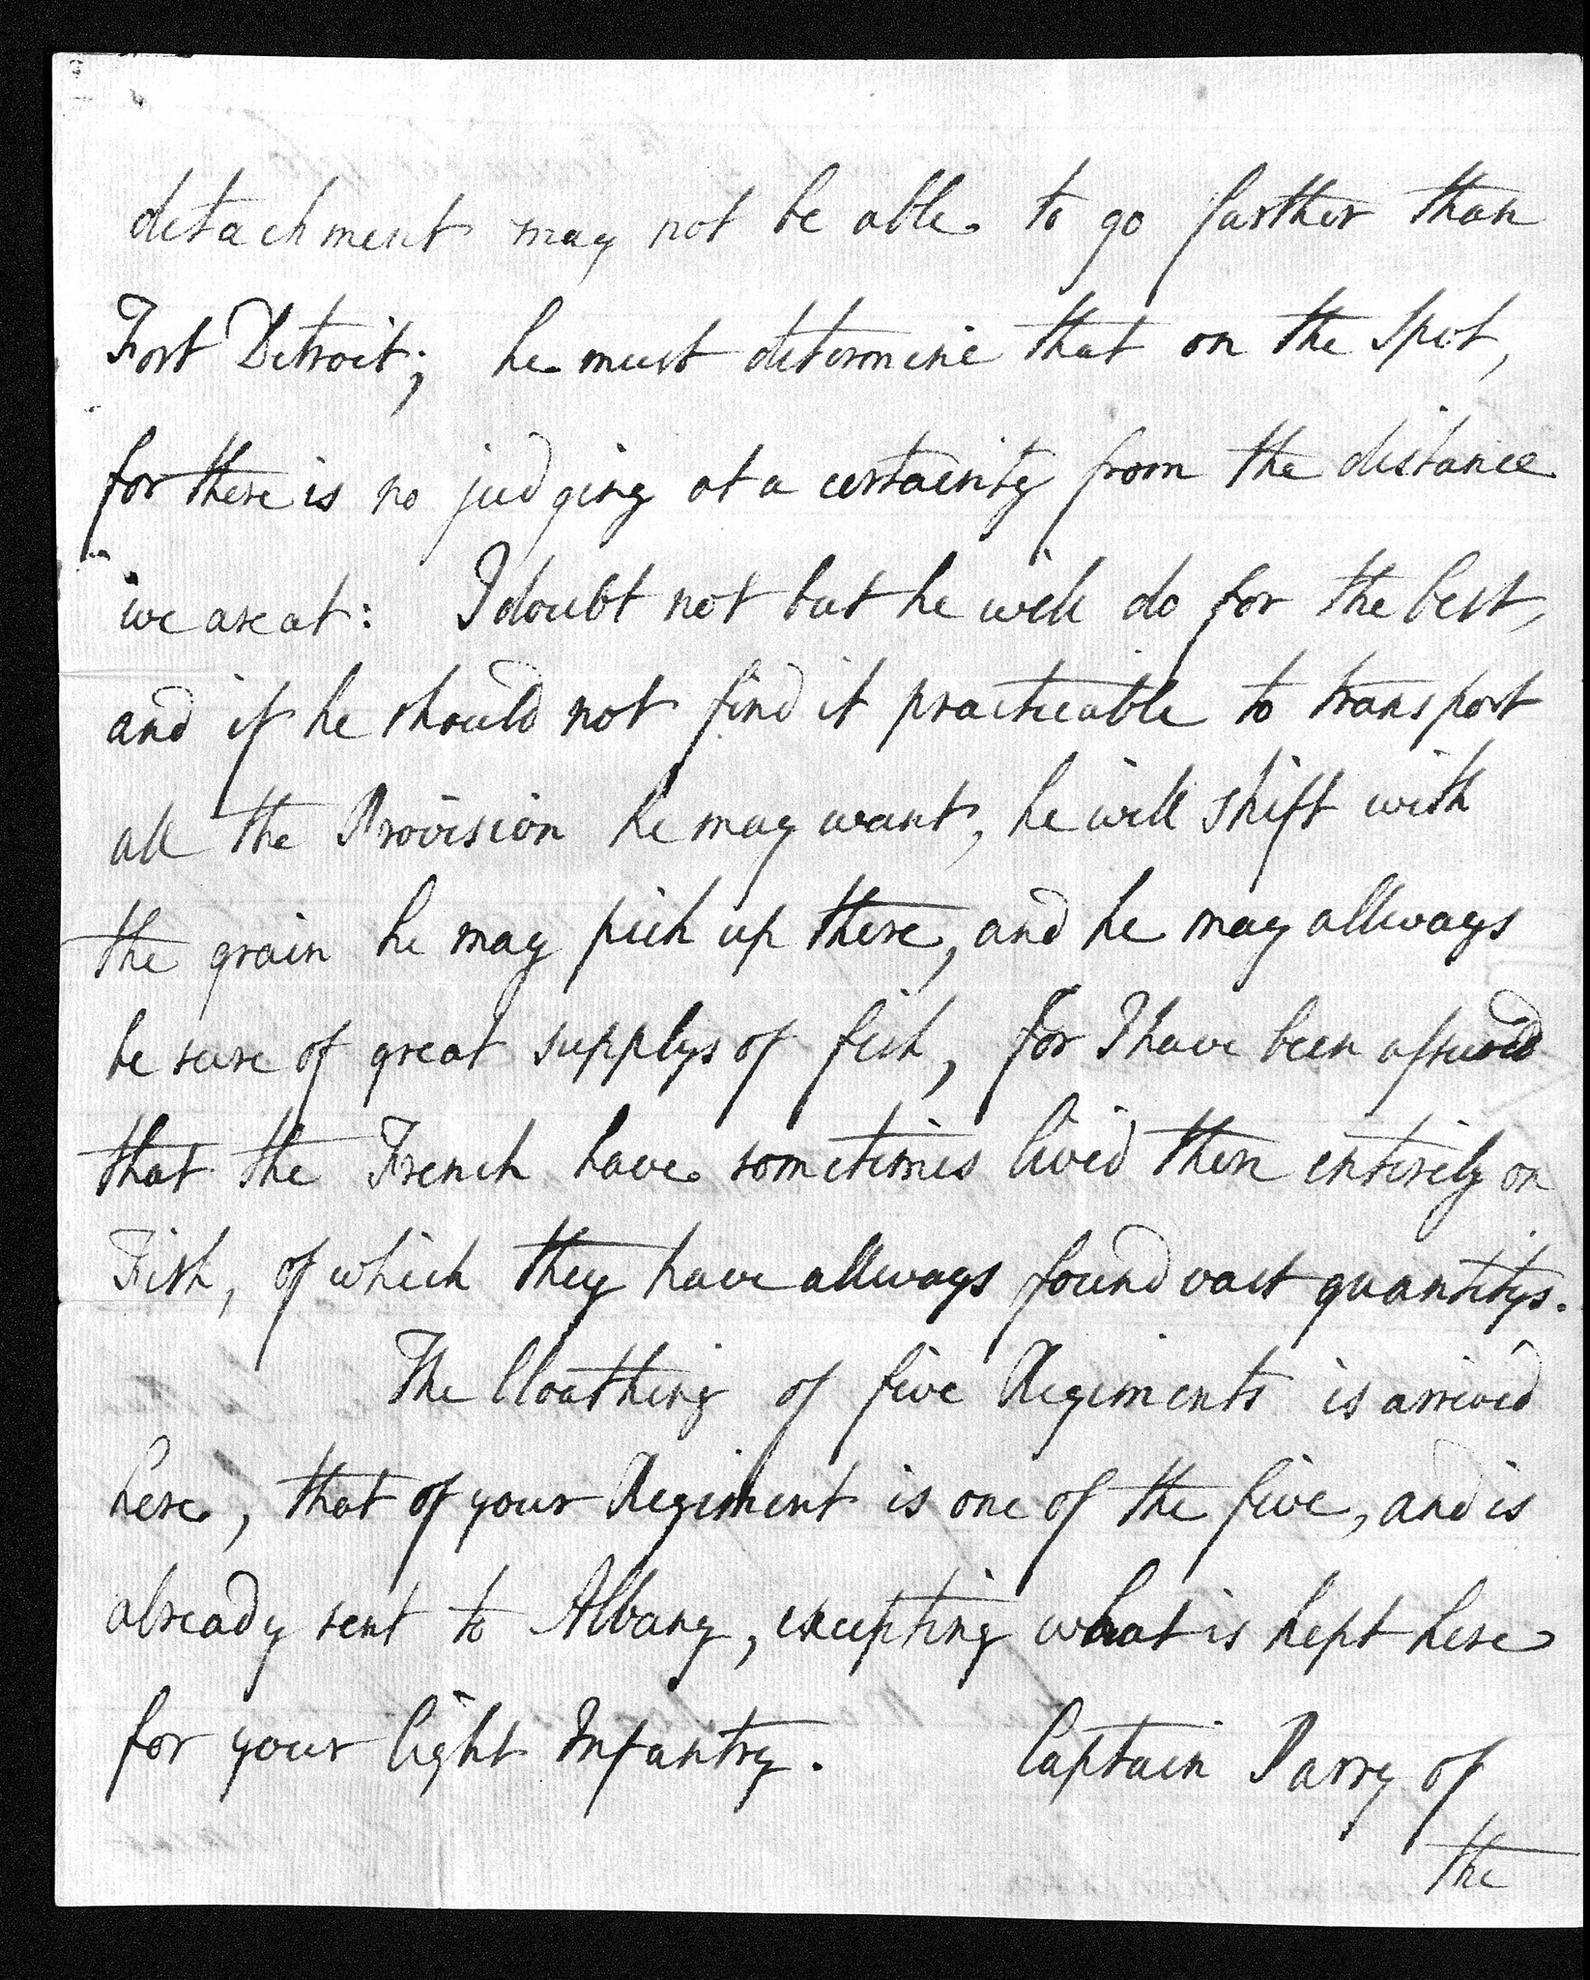 detachment may not be able to go farther than
Fort Detroit; he must determine that on the Spot,
for there is no judging at a certainity from the distance
we are at: I doubt not but he will do for the best,
and if he should not find it practicable to transport
all the Provision he may want, he will shift with
the grain he may pick up there, and he may allways
be sure of great supplys of fish, for I have been assured
that the French have sometimes lived there entirely on
Fish, of which they have allways found vast quantitys.
The Cloathing of five Regiments is arrived
here, that of your Regiment is one of the five, and is
already sent to Albany, excepting what is kept here
for your light Infantry. Captain Parry of
the